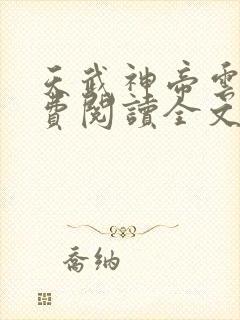 天武神帝雲
費閱讀全文
喬納